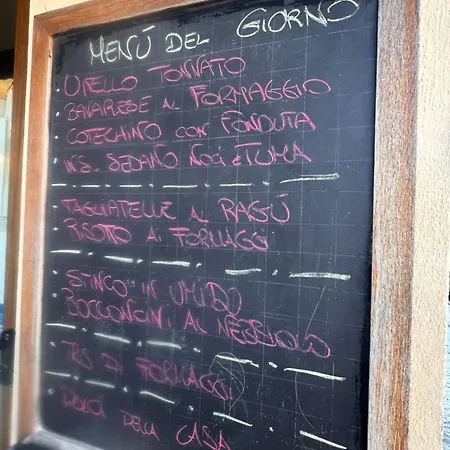 MENÚ DEL GIORNO
• VITELLO TONNATO
• CANAVESE AL FORMAGGIO
• COTECHINO CON FONDUTA
• INS. SEDANO NOCI E TUMA
• TAGLIATELLE AL RAGÚ
• RISOTTO AI FORMAGGI
• STINCO IN UMIDO
• BOCCONCINI AL NEBBIOLO
• TRIS DI FORMAGGI
• DOLCI DELLA CASA